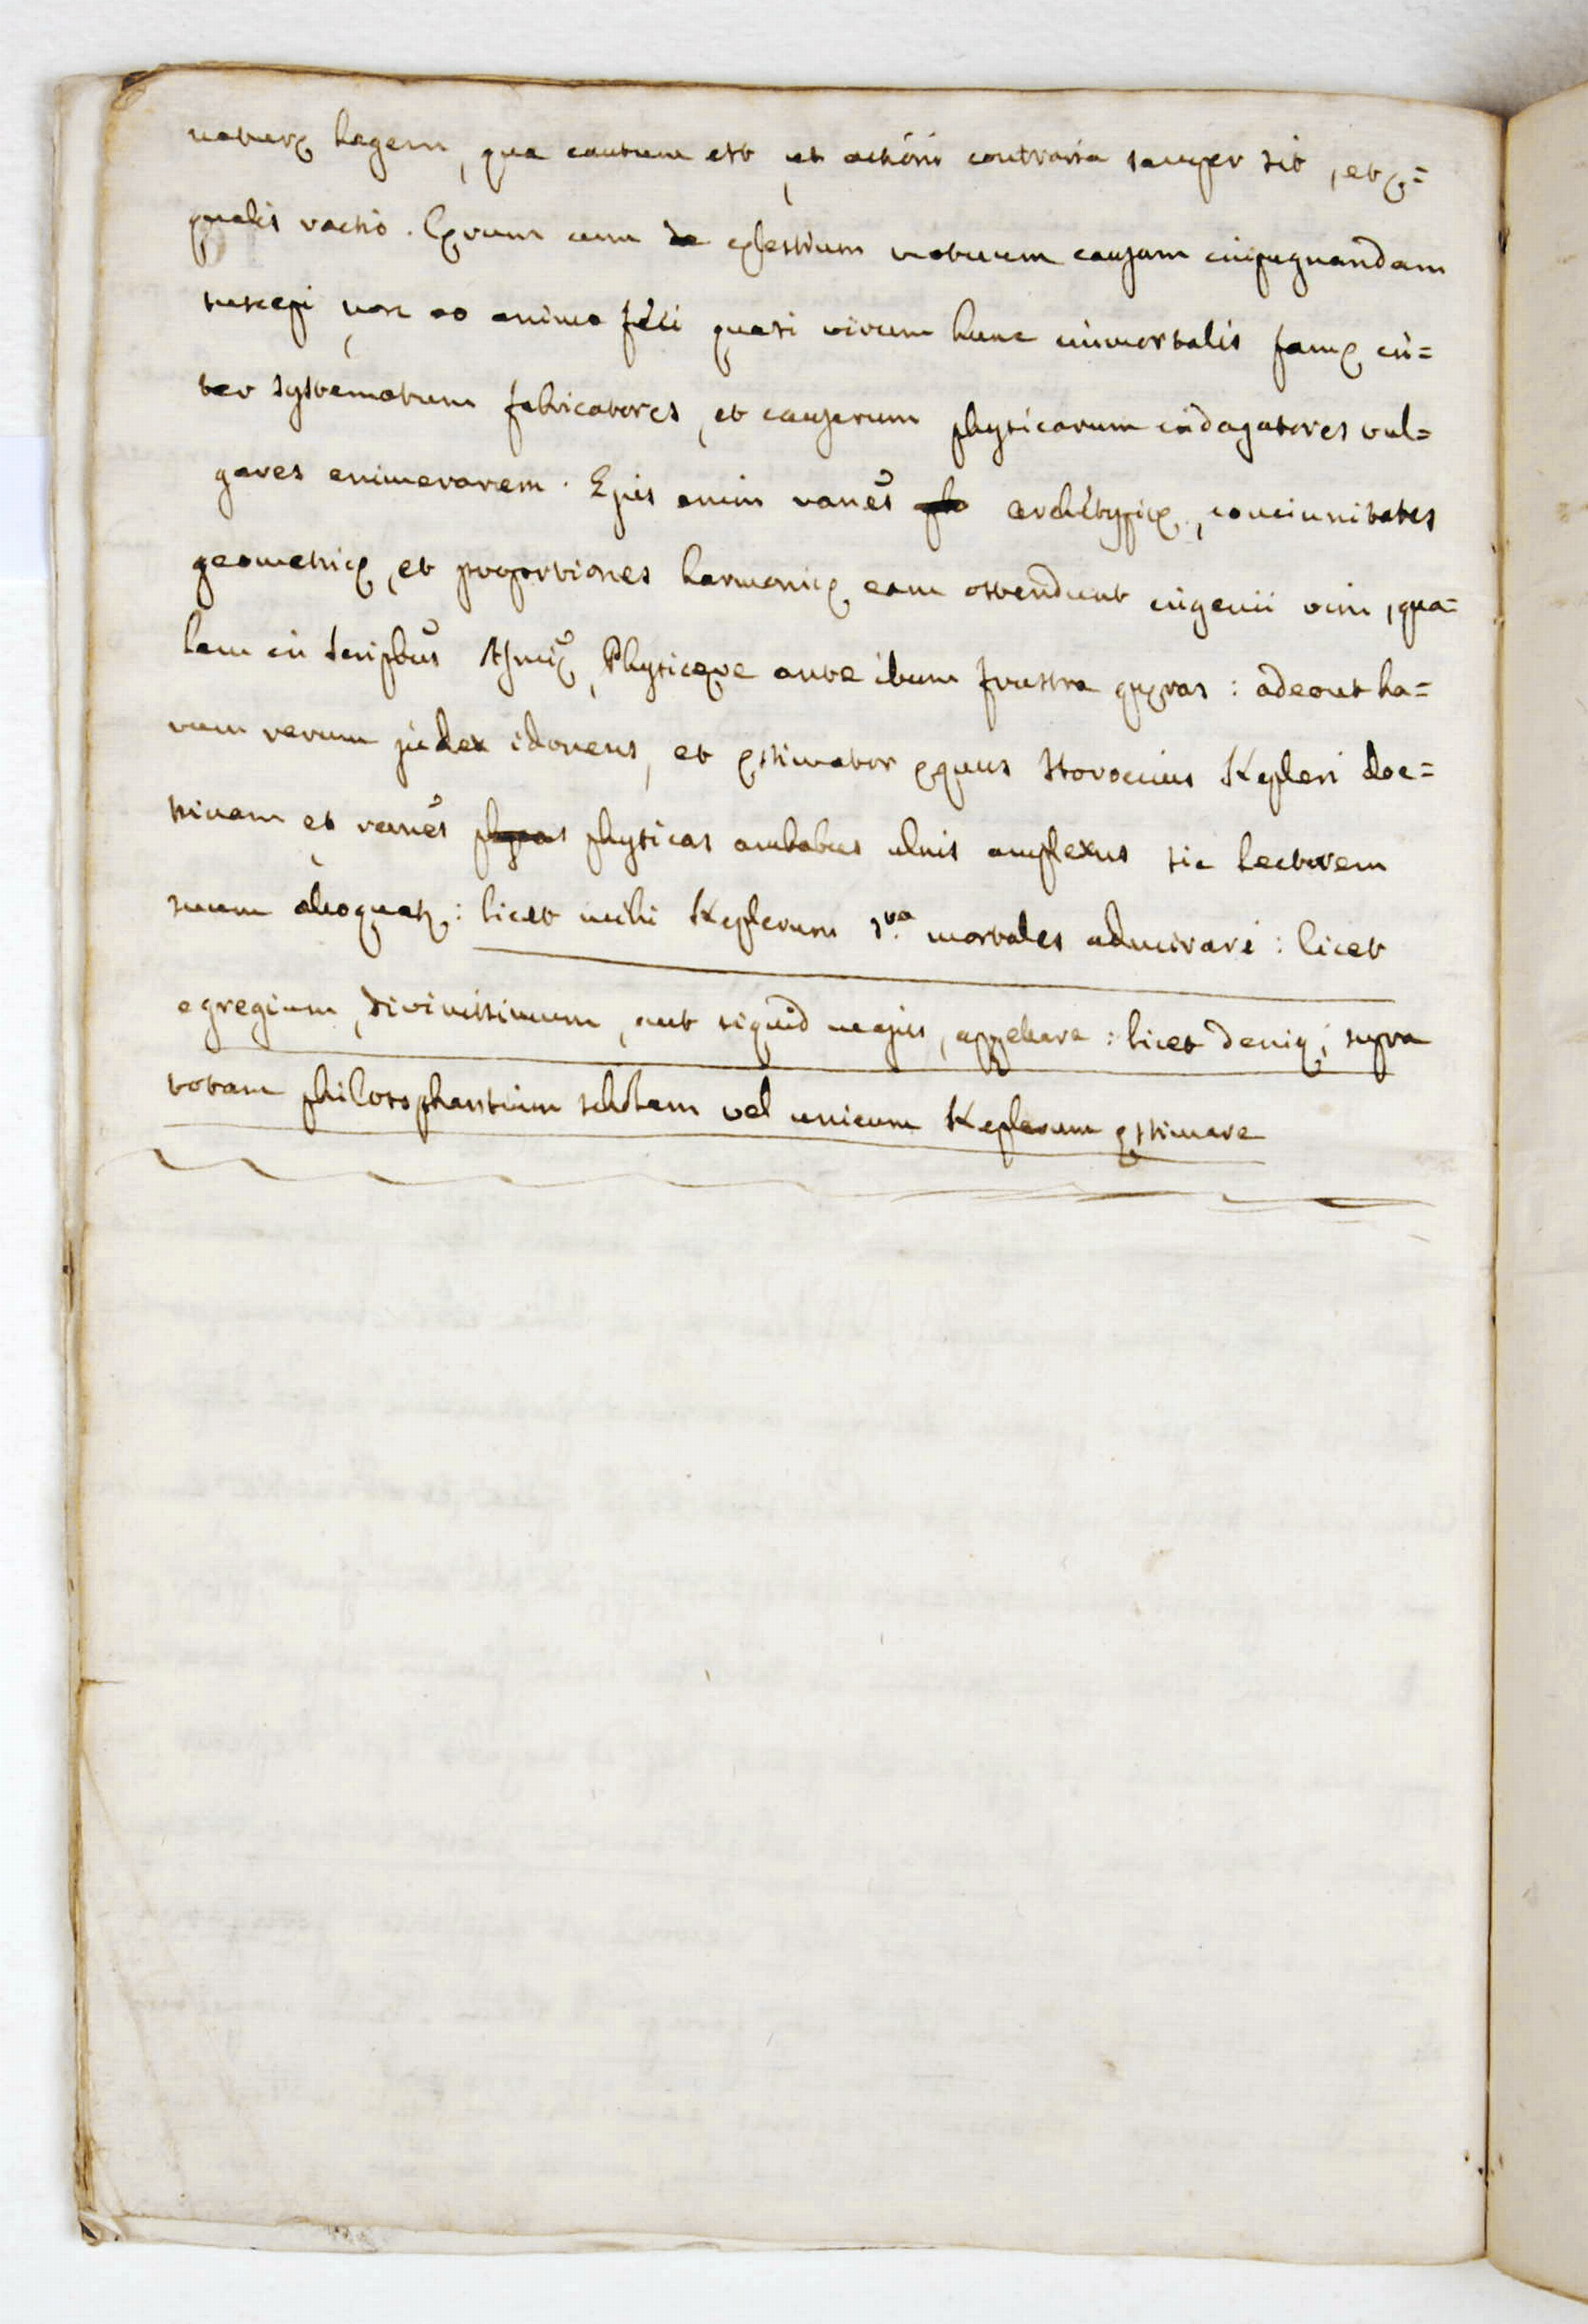 naturę legem, qua cautum est ut actioni contraria semper sit, et ę=
qualis ractio. Cęrum cum de cęlestium motuum causam impugnandam
suscepi non eo animo feci quasi virum hunc immortalis famę in=
ter systematum fabricatores, et causarum physicarum indagatores vul=
gares enumerarem. Ejus enim ranẽs archetypicę, concinnitates
geometricę, et proportiones harmonicę eam ostendunt ingenii vim, qua=
lem in scripbus Physiceque ante illum frustra quęras: adeout ha=
rum rerum judex idoneus, et ęstimator ęquus Horocius Kepleri doc=
trinam et ranẽs physicas ambabus ulnis amplexus sic lectorem
suum alloquatr: licet mihi Keplerum sra mortales admirari: licet
egregium, divinissimum, aut siquid majus, appellare: licet deniq; supra
totam philosophantium scholam vel unicum Keplerum ęstimare